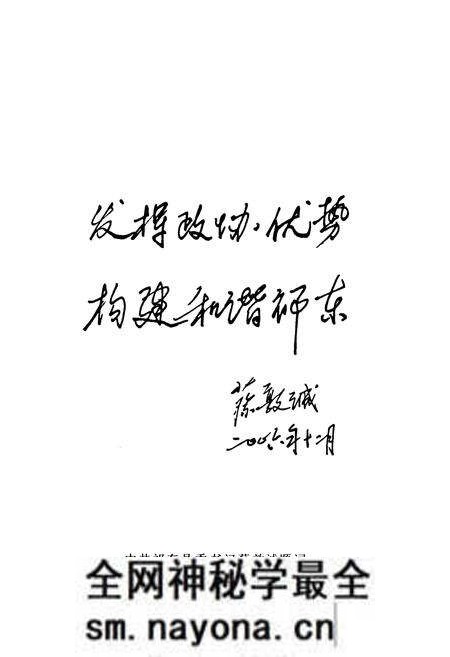 发挥政协优势
构建和谐祁东
蔡敦诚
二〇〇六年十二月
全网神秘学最全
sm.nayona.cn